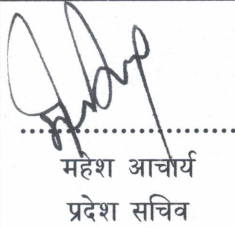 महेश आचार्य
प्रदेश सचिव